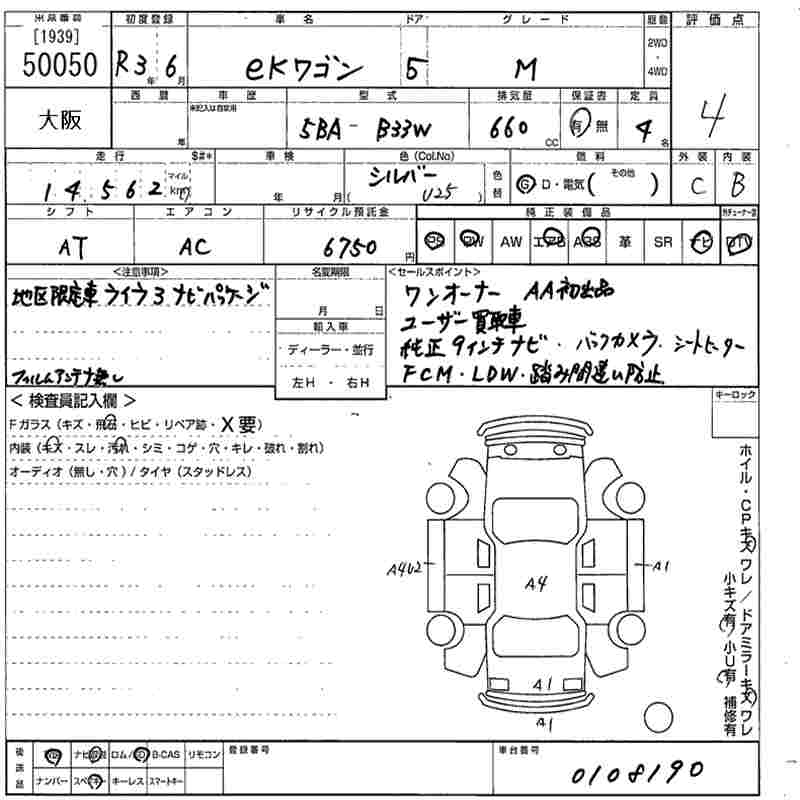 出品番号 初度登録 車名 ドア グレード 駆動 評価点
[1939]
50050 R3年6月 eKワゴン 5 M 2WD・4WD
大阪 西暦 車歴 型式 排気量 保証書 定員 4
未記入は自家用
年 5BA-B33W 660cc 有・無 4名
走行 $#* 車検 色(Col.No) 燃料 外装 内装
14562 マイル km 年 月 シルバー (U25) 色替 G・D・電気(その他) C B
シフト エアコン リサイクル預託金 純正装備品
AT AC 6750円 PS PW AW エアB ABS 革 SR ナビ DTV
<注意事項> 名変期限 <セールスポイント>
地区限定車 ライフ3 ナビパッケージ
月 日
輸入車
ディーラー・並行
左H・右H
フィルムアンテナ無し
ワンオーナー AA初出品
ユーザー買取車
純正9インチナビ・バックカメラ・シートヒーター
FCM・LDW・踏み間違い防止
<検査員記入欄> キーロック
Fガラス(キズ・飛石・ヒビ・リペア跡・X要)
内装(キズ・スレ・汚れ・シミ・コゲ・穴・キレ・破れ・割れ)
オーディオ(無し・穴)/タイヤ(スタッドレス)
A4U2 A4 A1
A1
A1
ホイル・CPキズ ワレ/ドアミラーキズ ワレ
小キズ有/小U有/補修有
後送品 ロム/ B-CAS リモコン 登録番号 車台番号
ナンバー スペアキー キーレス スマートキー
0108190